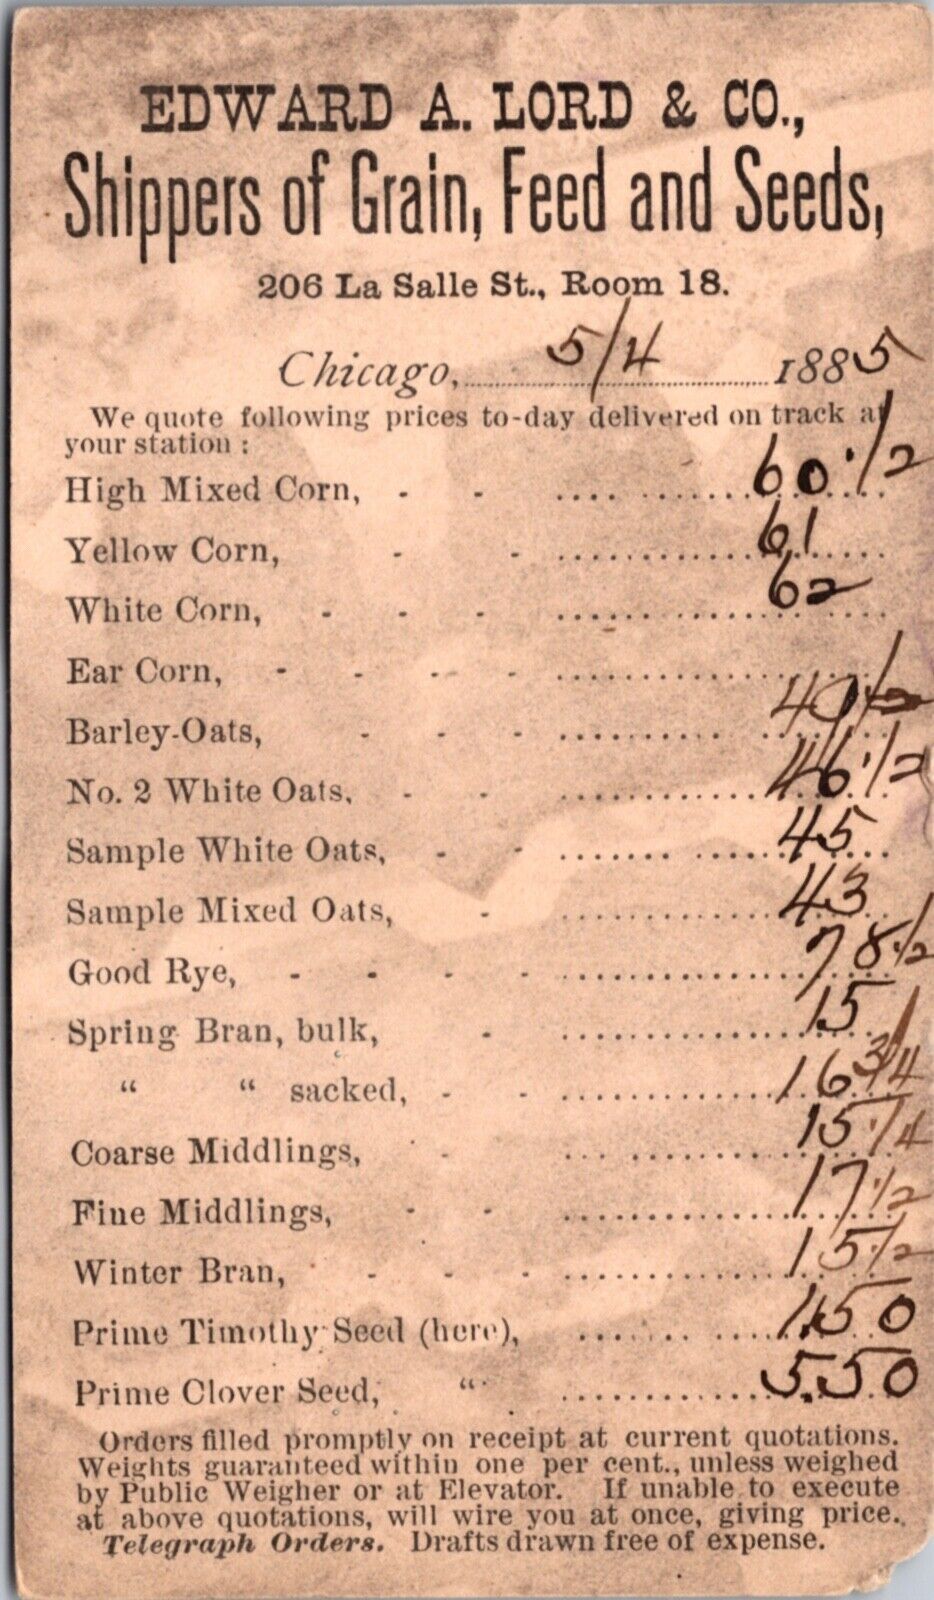 EDWARD A. LORD & CO.,
Shippers of Grain, Feed and Seeds,
206 La Salle St., Room 18.
Chicago, 5/4 1885
We quote following prices to-day delivered on track at
your station :
High Mixed Corn, - - 60 1/2
Yellow Corn, - - 61
White Corn, - - - 62
Ear Corn, - - - -
Barley-Oats, - - -
No. 2 White Oats, - - 46 1/2
Sample White Oats, - - 45
Sample Mixed Oats, - 43
Good Rye, - - - - 78 1/2
Spring Bran, bulk, - 15
“ “ sacked, - - 16 3/4
Coarse Middlings, - 15 1/4
Fine Middlings, - - 17 1/2
Winter Bran, - - - 15 1/2
Prime Timothy Seed (here), 1.50
Prime Clover Seed, “ 5.50
Orders filled promptly on receipt at current quotations.
Weights guaranteed within one per cent., unless weighed
by Public Weigher or at Elevator. If unable to execute
at above quotations, will wire you at once, giving price.
Telegraph Orders. Drafts drawn free of expense.